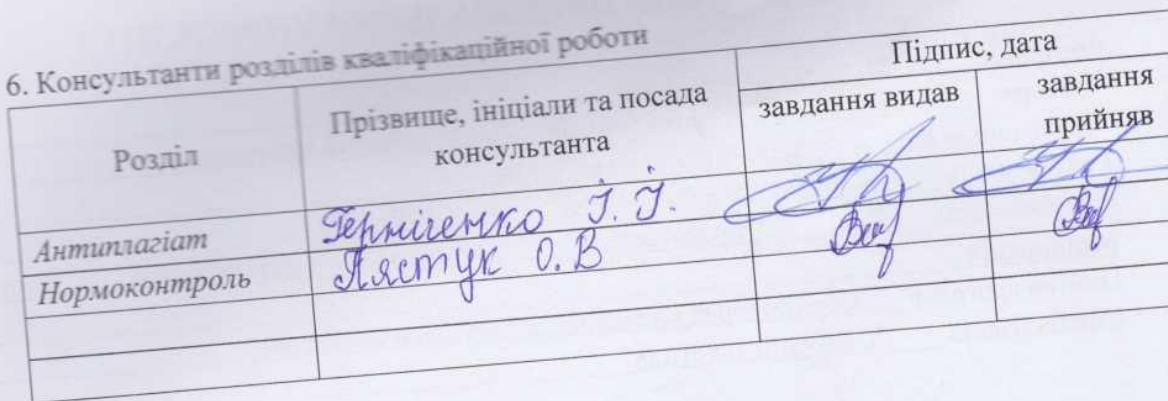 6. Консультанти розділів кваліфікаційної роботи
Розділ
Прізвище, ініціали та посада
консультанта
Підпис, дата
завдання видав
завдання
прийняв
Антиплагіат
І. І.
Нормоконтроль
Лястук О. В